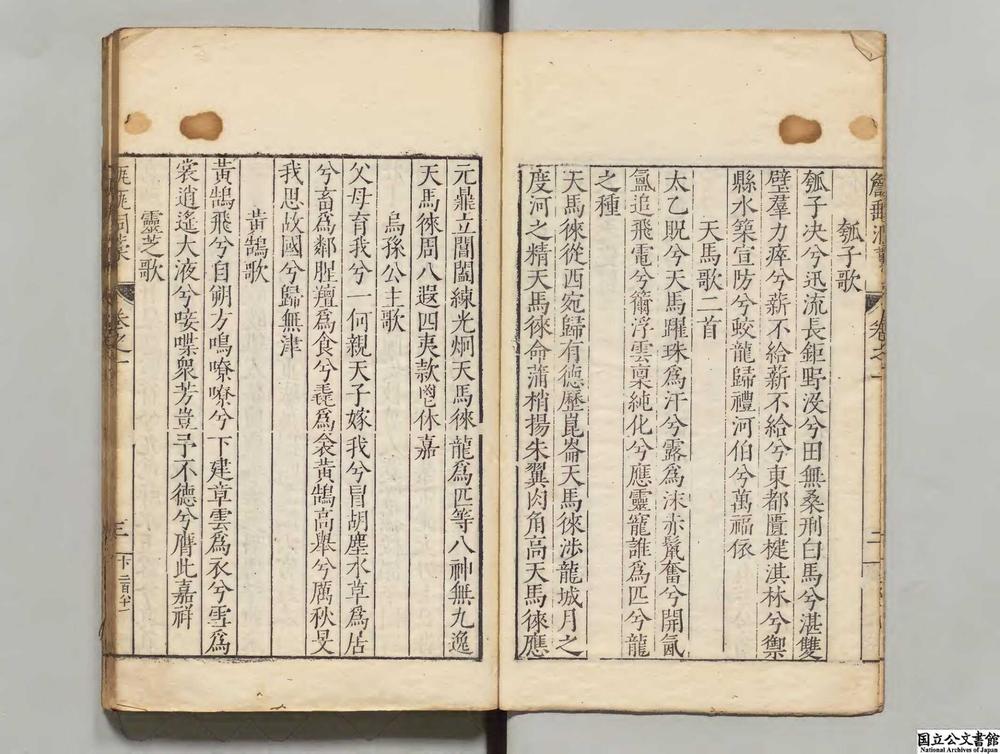 瓠子歌
瓠子决兮迅流長鉅野没兮田無桑刑白馬兮湛雙
璧羣力瘁兮薪不給薪不給兮東都匱楗淇林兮禦
縣水築宣防兮蛟龍歸禮河伯兮萬福依
天馬歌二首
太乙貺兮天馬躍珠為汗兮露為沫赤鬣奮兮開氤
氳追飛電兮籋浮雲稟純化兮應靈寵誰為匹兮龍
之種
天馬徠從西宛歸有德歷崑崙天馬徠涉龍城月之
度河之精天馬徠命蒲梢揚朱翼肉角高天馬徠應
元鼎立閶闔練光炯天馬徠龍為匹等八神無九逸
天馬徠周八遐四夷款鬯休嘉
烏孫公主歌
父母育我兮一何親天子嫁我兮冒胡塵水草為居
兮畜為鄰腥羶為食兮毳為衾黃鵠高舉兮厲秋旻
我思故國兮歸無津
黃鵠歌
黃鵠飛兮自朔方鳴嘹嘹兮下建章雲為衣兮雪為
裳逍遙大液兮唼喋衆芳豈予不德兮膺此嘉祥
靈芝歌
卷之一
三
下二百六十
国立公文書館
National Archives of Japan